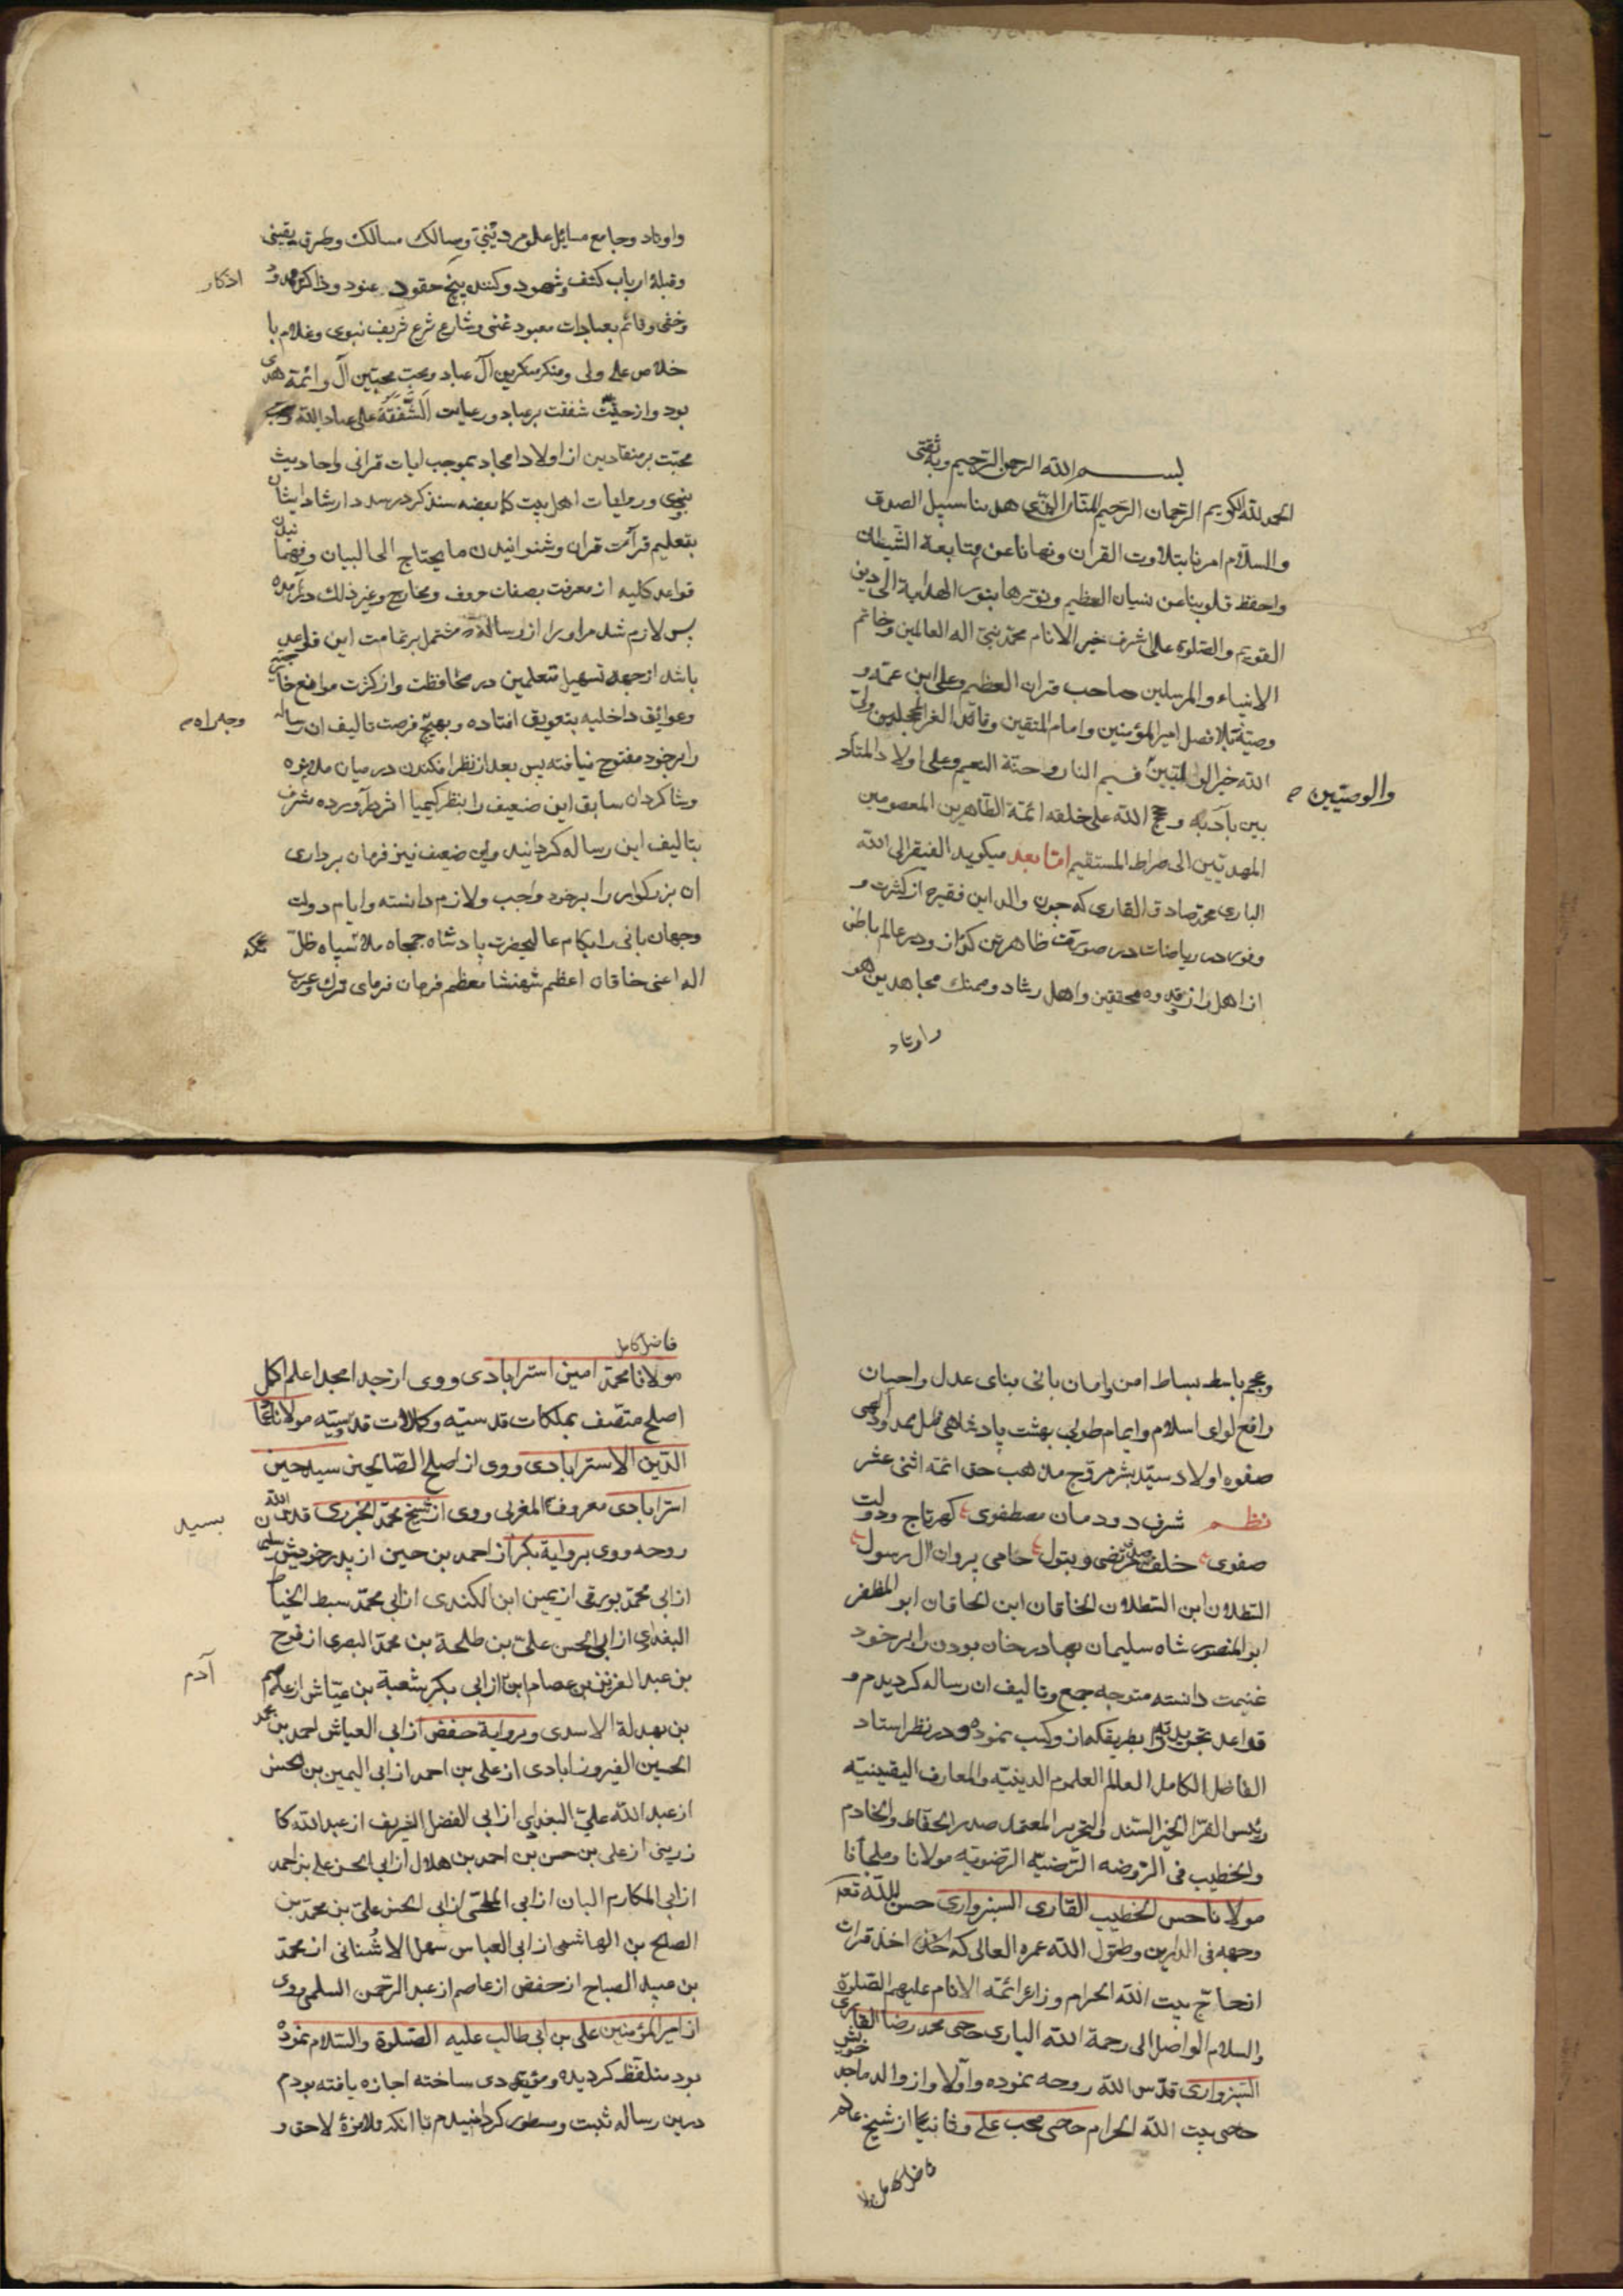 بسم الله الرحمن الرحیم وبه ثقتی
الحمد لله الکریم الرحمان الرحیم المنان الذی هدینا سبیل الصدق
والسلام امرنا بتلاوت القرآن ونهانا عن متابعة الشیطان
واحفظ قلوبنا عن نسیان العظیم ونورها بنور الهدایة الی دین
القویم والصلوة علی اشرف خیر الانام محمد نبی اله العالمین وخاتم
الانبیاء والمرسلین صاحب قران العظیم وعلی ابن عمه و
وصیه بلا فصل امیر المؤمنین وامام المتقین وقائد الغر المحجلین ولی
الله خیر الوالیین قسیم النار وجنة النعیم وعلی اولاد المتأد
والوصیین
بین بآدابه وحجج الله علی خلقه ائمة الطاهرین المعصومین
المهدیین الی صراط المستقیم اما بعد میکوید الفقیر الی الله
الباری محمد صادق القاری که چون والد این فقیر از کثرت و
وفور در ریاضات در صورت ظاهر و در عالم باطن
از اهل راز قدوه محققین واهل رشاد وممتك مجاهدین هو
واوتاد
واوتاد وجامع مسایل علوم دینی وسالك مسالك وطرق یقینی
وقبلهٔ ارباب کشف وشهود وکننده حقود عنود وذاکر
اذکار
وخفی وقائم بعبادات معبود غنی وشارع شرع شریف نبوی وغلام با
خلاص علی ولی ومنکر منکرین آل عباد ومحب محبین آل وائمة هدی
بود واز حیث شفقت بر عباد ورعایت الشفقة علی عباد الله
محبت بر منقادین از اولاد امجاد بموجب ایات قرانی واحادیث
نبوی وروایات اهل بیت در ارشاد ایشان
بتعلیم قرآت قران وشنوانیدن ما یحتاج الی البیان وفهما
نیدن
قواعد کلیه از معرفت بصفات حروف ومخارج وغیر ذلك در آمده
پس لازم شد مر او را از رساله مشتمل بر تمامت این قواعد
باشد از جهة تسهیل متعلمین در محافظت واز کثرت موانع خارجیه
وعوایق داخلیه بتعویق افتاده وبهیچ فرصت تالیف ان رساله
را بر خود مفتوح نیافته پس بعد از نظر افکندن در میان ملازمه
وشاکردان سابق این ضعیف را بنظر کیمیا اثر در آورده مشرف
بتالیف این رساله کردانید واین ضعیف نیز فرمان برداری
ان بزرکوار را بر خود واجب ولازم دانسته وایام دولت
وجهان بانی را بکام عالیحضرت پادشاه جمجاه ملائك سپاه ظل
اله اعنی خاقان اعظم شهنشا معظم فرمان فرمای ترك وعرب
وعجم باسط بساط امن وامان بانی بنای عدل واحسان
رافع لوای اسلام وایمام طوبی بهشت پادشاهی ظل ممدود الهی
صفوه اولاد سید بشر مروج مذهب حق ائمه اثنی عشر
نظم شرف دودمان مصطفوی کهر تاج ودولت
صفوی خلف مرتضی وبتول حامی پیروان ال رسول
السطلان ابن السطلان الخاقان ابن الخاقان ابو المظفر
ابو المنصور شاه سلیمان بهادر خان بودن را بر خود
غنیمت دانسته متوجه جمع وتالیف ان رساله کردیدم و
قواعد تجویدیه را بطریقکه از وکسب نموده ودر نظر استاد
الفاضل الکامل العالم العلوم الدینیه والمعارف الیقینیه
رئیس القرا الخیر السند والنحریر المعتمد صدر الحفاظ والخادم
والخطیب فی الروضه الرضیه الرضویه مولانا وملجأنا
مولانا حسن الخطیب القاری السبزواری حسن الله تعه
وجهه فی الدارین وطول الله عمره العالی که اخذ قرات
از حاج بیت الله الحرام وزائر ائمه الانام علیهم الصلوة
والسلام الواصل الی رحمة الله الباری حاجی محمد رضا القاری
السبزواری قدس الله روحه نموده واولا واز والد ماجد خویش
حاجی بیت الله الحرام حاجی محب علی وثانیا از شیخ عالم
فاضل کامل مولا
فاضل کامل
مولانا محمد امین استرابادی ووی از جد امجد اعلم اکمل
اصلح متصف بملکات قدسیه وکمالات قدوسیه مولانا عماد
الدین الاسترابادی ووی از اصلح الصالحین سید حسین
استرابادی معروف المغربی ووی از شیخ محمد الجزری قدس الله
بسید
روحه ووی بروایة بکر از احمد بن حسین از پدر خودش سلیمان
از ابی محمد بورقی از یمین ابن الکندی از ابی محمد سبط الخیاط
البغدادی از ابی الحسن علی بن طلحة بن محمد البصری از فرح
بن عبد العزیز بن عصام از ابی بکر شعبة بن عیاش از عاصم
آدم
بن بهدلة الاسدی وبروایة حفص از ابی العباس احمد بن محمد
الحسین الفیروزابادی از علی بن احمد از ابی الیمین بن الحسن
از عبد الله علی البغدادی از ابی الفضل الشریف از عبد الله کا
زرینی از علی بن حسن بن احمد بن هلال از ابی الحسن علی بن احمد
از ابی المکارم البان از ابی علی از ابی الحسن علی بن محمد بن
الصلح بن الهاشمی از ابی العباس سهل الاشنانی از محمد
بن عبید الصباح از حفص از عاصم از عبد الرحمن السلمی ووی
از امیر المؤمنین علی بن ابی طالب علیه الصلوة والسلام نموده
بود متلفظ کردیده ومؤدی ساخته اجازه یافته بودم
درین رساله ثبت ومسطور کردانیدم تا انکه تلامذهٔ لاحق و